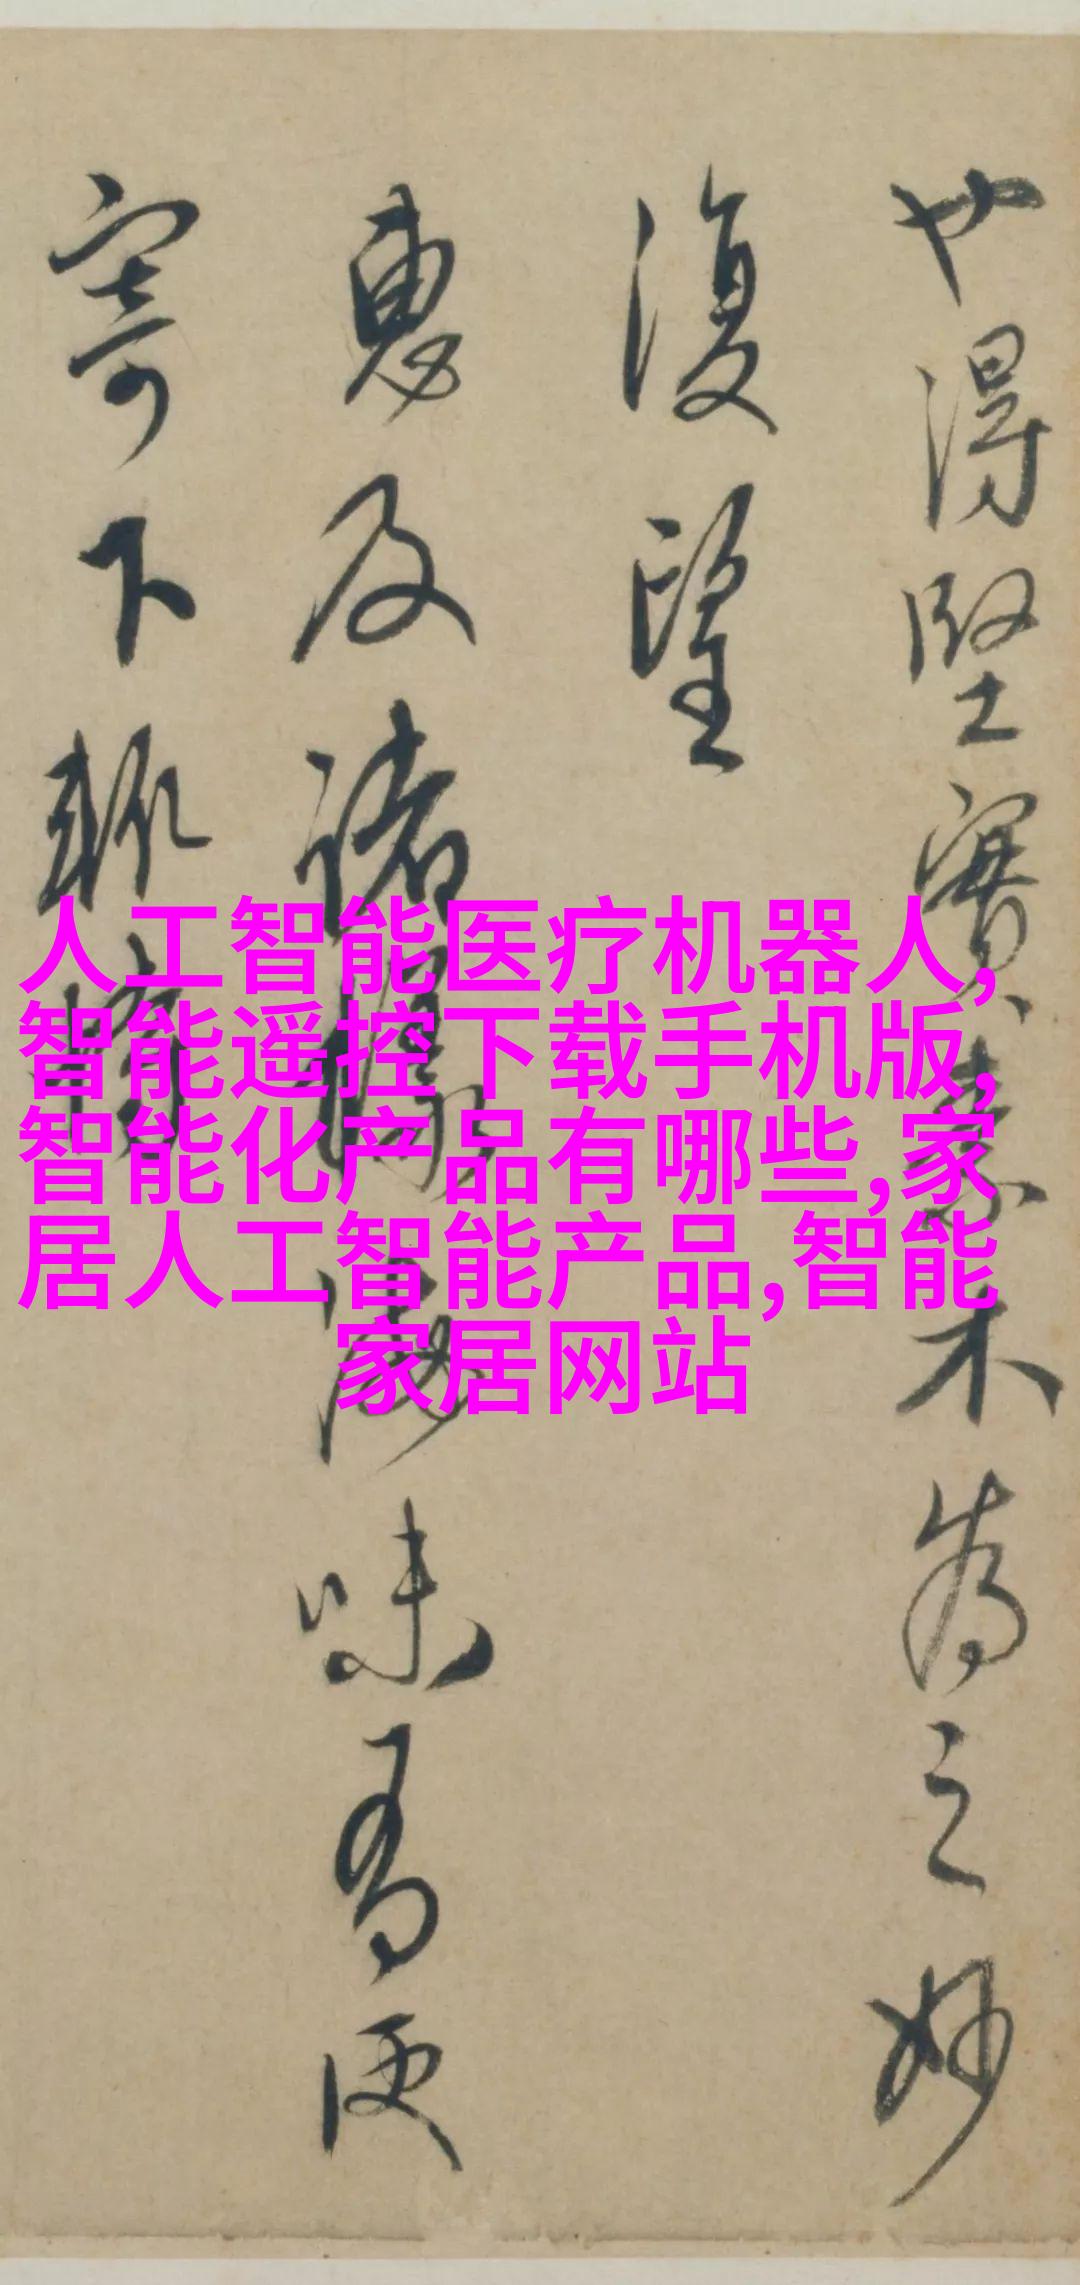 得堅實素木為之妙
復望
惠及諸海味有便
寄下輒
人工智能医疗机器人,
智能遥控下载手机版,
智能化产品有哪些,家
居人工智能产品,智能
家居网站